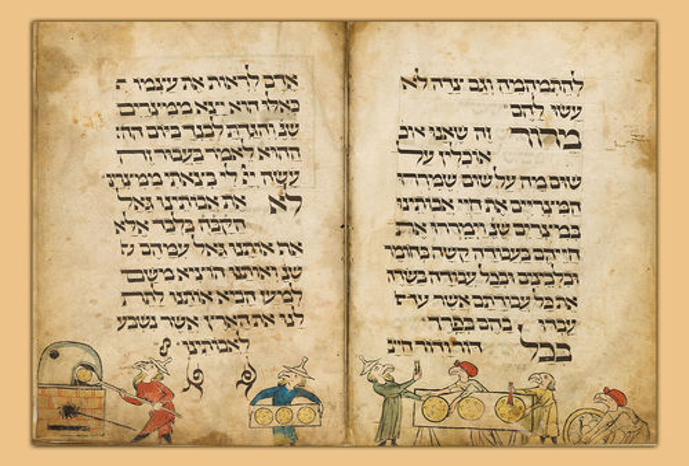 להתמהמה וגם צדה לא
עשו להם
מרור זה שאנו אוכ
אוכלין על
שום מה על שום שמררו
המצריים את חיי אבותינו
במצרים שנ וימררו את
חייהם בעבודה קשה בחומר
ובלבנים ובכל עבודה בשדה
את כל עבודתם אשר
עבדו בהם בפרך
בכל דור ודור חייב
אדם לראות את עצמו
כאלו הוא יצא ממצרים
שנ והגדת לבנך ביום
ההוא לאמר בעבור זה
עשה יי לי בצאתי ממצרים
לא את אבותינו גאל
הקבה בלבד אלא
את אותנו גאל עמהם
שנ ואותנו הוציא משם
למען הביא אותנו לתת
לנו את הארץ אשר נשבע
לאבותינו